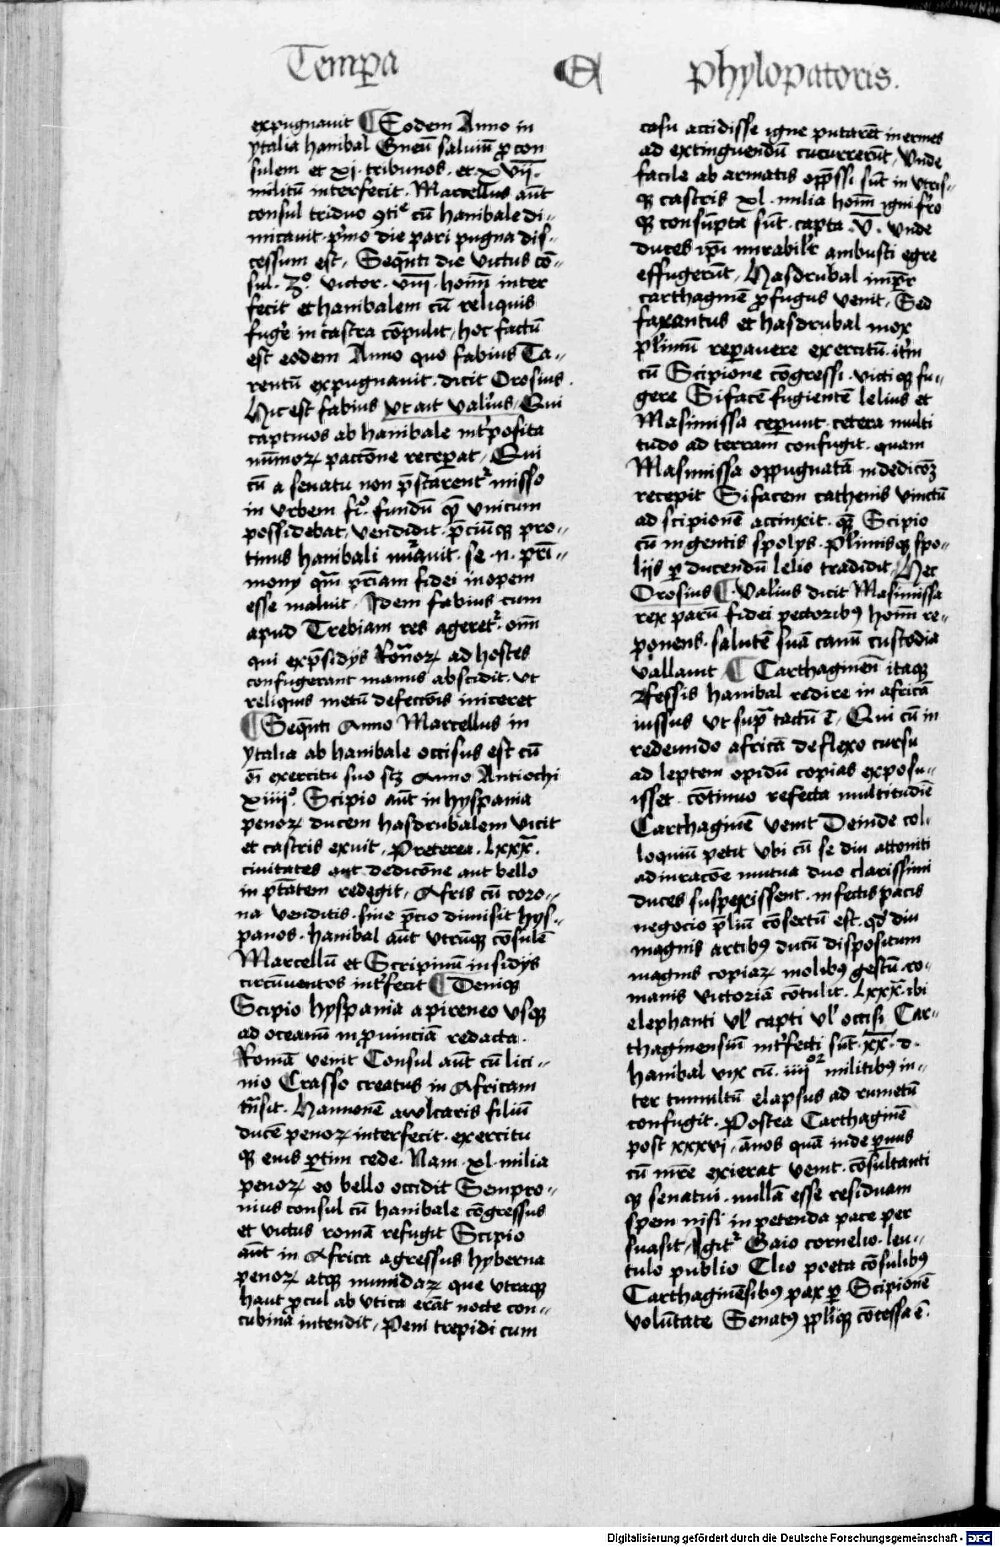 Temꝑa
A
phylopatoris.
expugnauit ¶ Eodem Anno in
ytalia hanibal Gneū saluiū ꝓcon
sulem et xj. tribunos. et. xvij.
militū interfecit. Marcellus aūt
consul triduo ꝯtī cū hanibale di-
micauit. pͥmo die pari pugna dis-
cessum est, Seqn̄ti die victus cō-
sul. 3º. victor. viij. hoīm inter
fecit et hanibalem cū reliquis
fugēr in castra cōpulit, hoc factū
est eodem Anno quo fabius Ta-
rentū expugnauit. dicit Orosius.
Hic est fabius vt ait valīus, Qui
captiuos ab hanibale int̄posita
nūmoꝝ pactōne receperat, Qui
cū a senatu non p̄starent᷑ misso
in vrbem fi.º fundū qm̄ vnicum
possidebat, vendidit. p̄ciūꝗ pro-
tinus hanibali nūauit. se. n. pr̄i-
mony qm̄ pr̄iam fidei inopem
esse maluit, Idem fabius cum
apud Trebiam res ageret᷑. oīn
qui exp̄sidijs Rōnoꝝ ad hostes
confugerant manus abscidit. vt
reliquis metū defectōis iniceret
¶ Seqn̄ti Anno Marcellus in
ytalia ab hanibale occisus est cū
oī exercitu suo scꝫ Anno Antiochi
xiiijº. Scipio aūt in hyspania
penoꝝ ducem hasdrubalem vicit
et castris exuit, Preterea. Lxxx.
ciuitates aut dedicōne aut bello
in ptātem redegit, Afris cū coro-
na venditis. sine p̄cio dimisit hys-
panos. hanibal aūt vtrūꝗ cōsulē
Marcellū et Scripinū insidijs
circūuentos int̄fecit ¶ Deniꝗ
Scipio hyspania a pireneo vsꝗ
ad oceanū in ꝓuinciā redacta.
Romā venit Consul aūt cū lici-
nio Crasso creatus in Africam
tn̄sit. Hannonē awlcaris filiū
ducē penoꝝ interfecit. exercitū
ꝗ eius ꝑtim cede. Nam. xl. milia
penoꝝ eo bello occidit Sempro-
nius consul cū hanibale cōgressus
et victus romā refugit Scipio
aūt in Africa agressus hyberna
penoꝝ atꝗ numidaꝝ que vtraꝗ
haut ꝓcul ab vtica erāt nocte con-
cubina intendit, Peni trepidi cum
casu accidisse igne putarēt inermes
ad extinguendū cucurrerūt, Vnde
facile ab armatis opp̄ssi sūt in vtris-
ꝗ castris xl. milia hoīm igni fͥro
ꝗ consūpta sūt. capta. v̄. vnde
duces ip̄i mirabilr̄ ambusti egre
effugerūt, Hasdrubal imp̄r
carthaginē ꝓfugus venit, Sed
faxantus et hasdrubal mox
pl̄imū reꝑauere exercitū. itm̄
cū Scipione cōgressi. victiꝗ fu-
gere Sifacē fugientē lelius et
Masinissa ceperunt. cetera multi
tudo ad terram confugit. quam
Masinissa oppugnatā in dedicōꝫ
recepit Sifacem cathenis vinctū
ad scipionē accinxit. quē Scipio
cū ingentis spolys. pl̄imisꝗ spo-
lijs ꝑ ducendū lelio tradidit, Hec
Orosius ¶ Valīus dicit Masinissa
rex parū fidei pectoribꝰ hoīm re-
ponens. salutē suā canū custodia
vallauit ¶ Carthaginēn itaꝗ
Fessis hanibal redire in africā
iussus vt sup̄ tactū ē, Qui cū in
redeundo africā deflexo cursu
ad leptem opidū copias exposu-
isset. cōtinuo refecta multitudīe
Carthaginē venit Deinde col-
loquiū petit vbi cū se diu attoniti
admiracōe mutua duo clarissimi
duces suspexissent. infectis pacis
negocio p̄liū cōsertū est. qd̄ diu
magnis artibꝰ ducū dispositum
magnis copiaꝝ molibꝰ gestū. ro-
manis victoriā cōtulit. Lxxx. ibi
elephanti vl̄ capti vl̄ occisi Car-
thaginensiū int̄fecti sūt. xx. d.
hanibal vix cū. iiijᵒʳ militibꝰ in-
ter tumultū elapsus ad rumetū
confugit. Postea Carthaginē
post xxxvj. ānos quā inde p̄uus
cū mr̄e exierat venit. cōsultanti
ꝗ senatui. nullā esse residuam
spem nisi in petenda pace per
suasit, Igit᷑ Gaio cornelio. leu-
tulo publio Elio poeta cōsulibꝰ
Carthaginēsibꝰ pax ꝑ Scipionē
volūtate Senatꝰ pp̄liꝗ cōcessa ē.
Digitalisierung gefördert durch die Deutsche Forschungsgemeinschaft - DFG